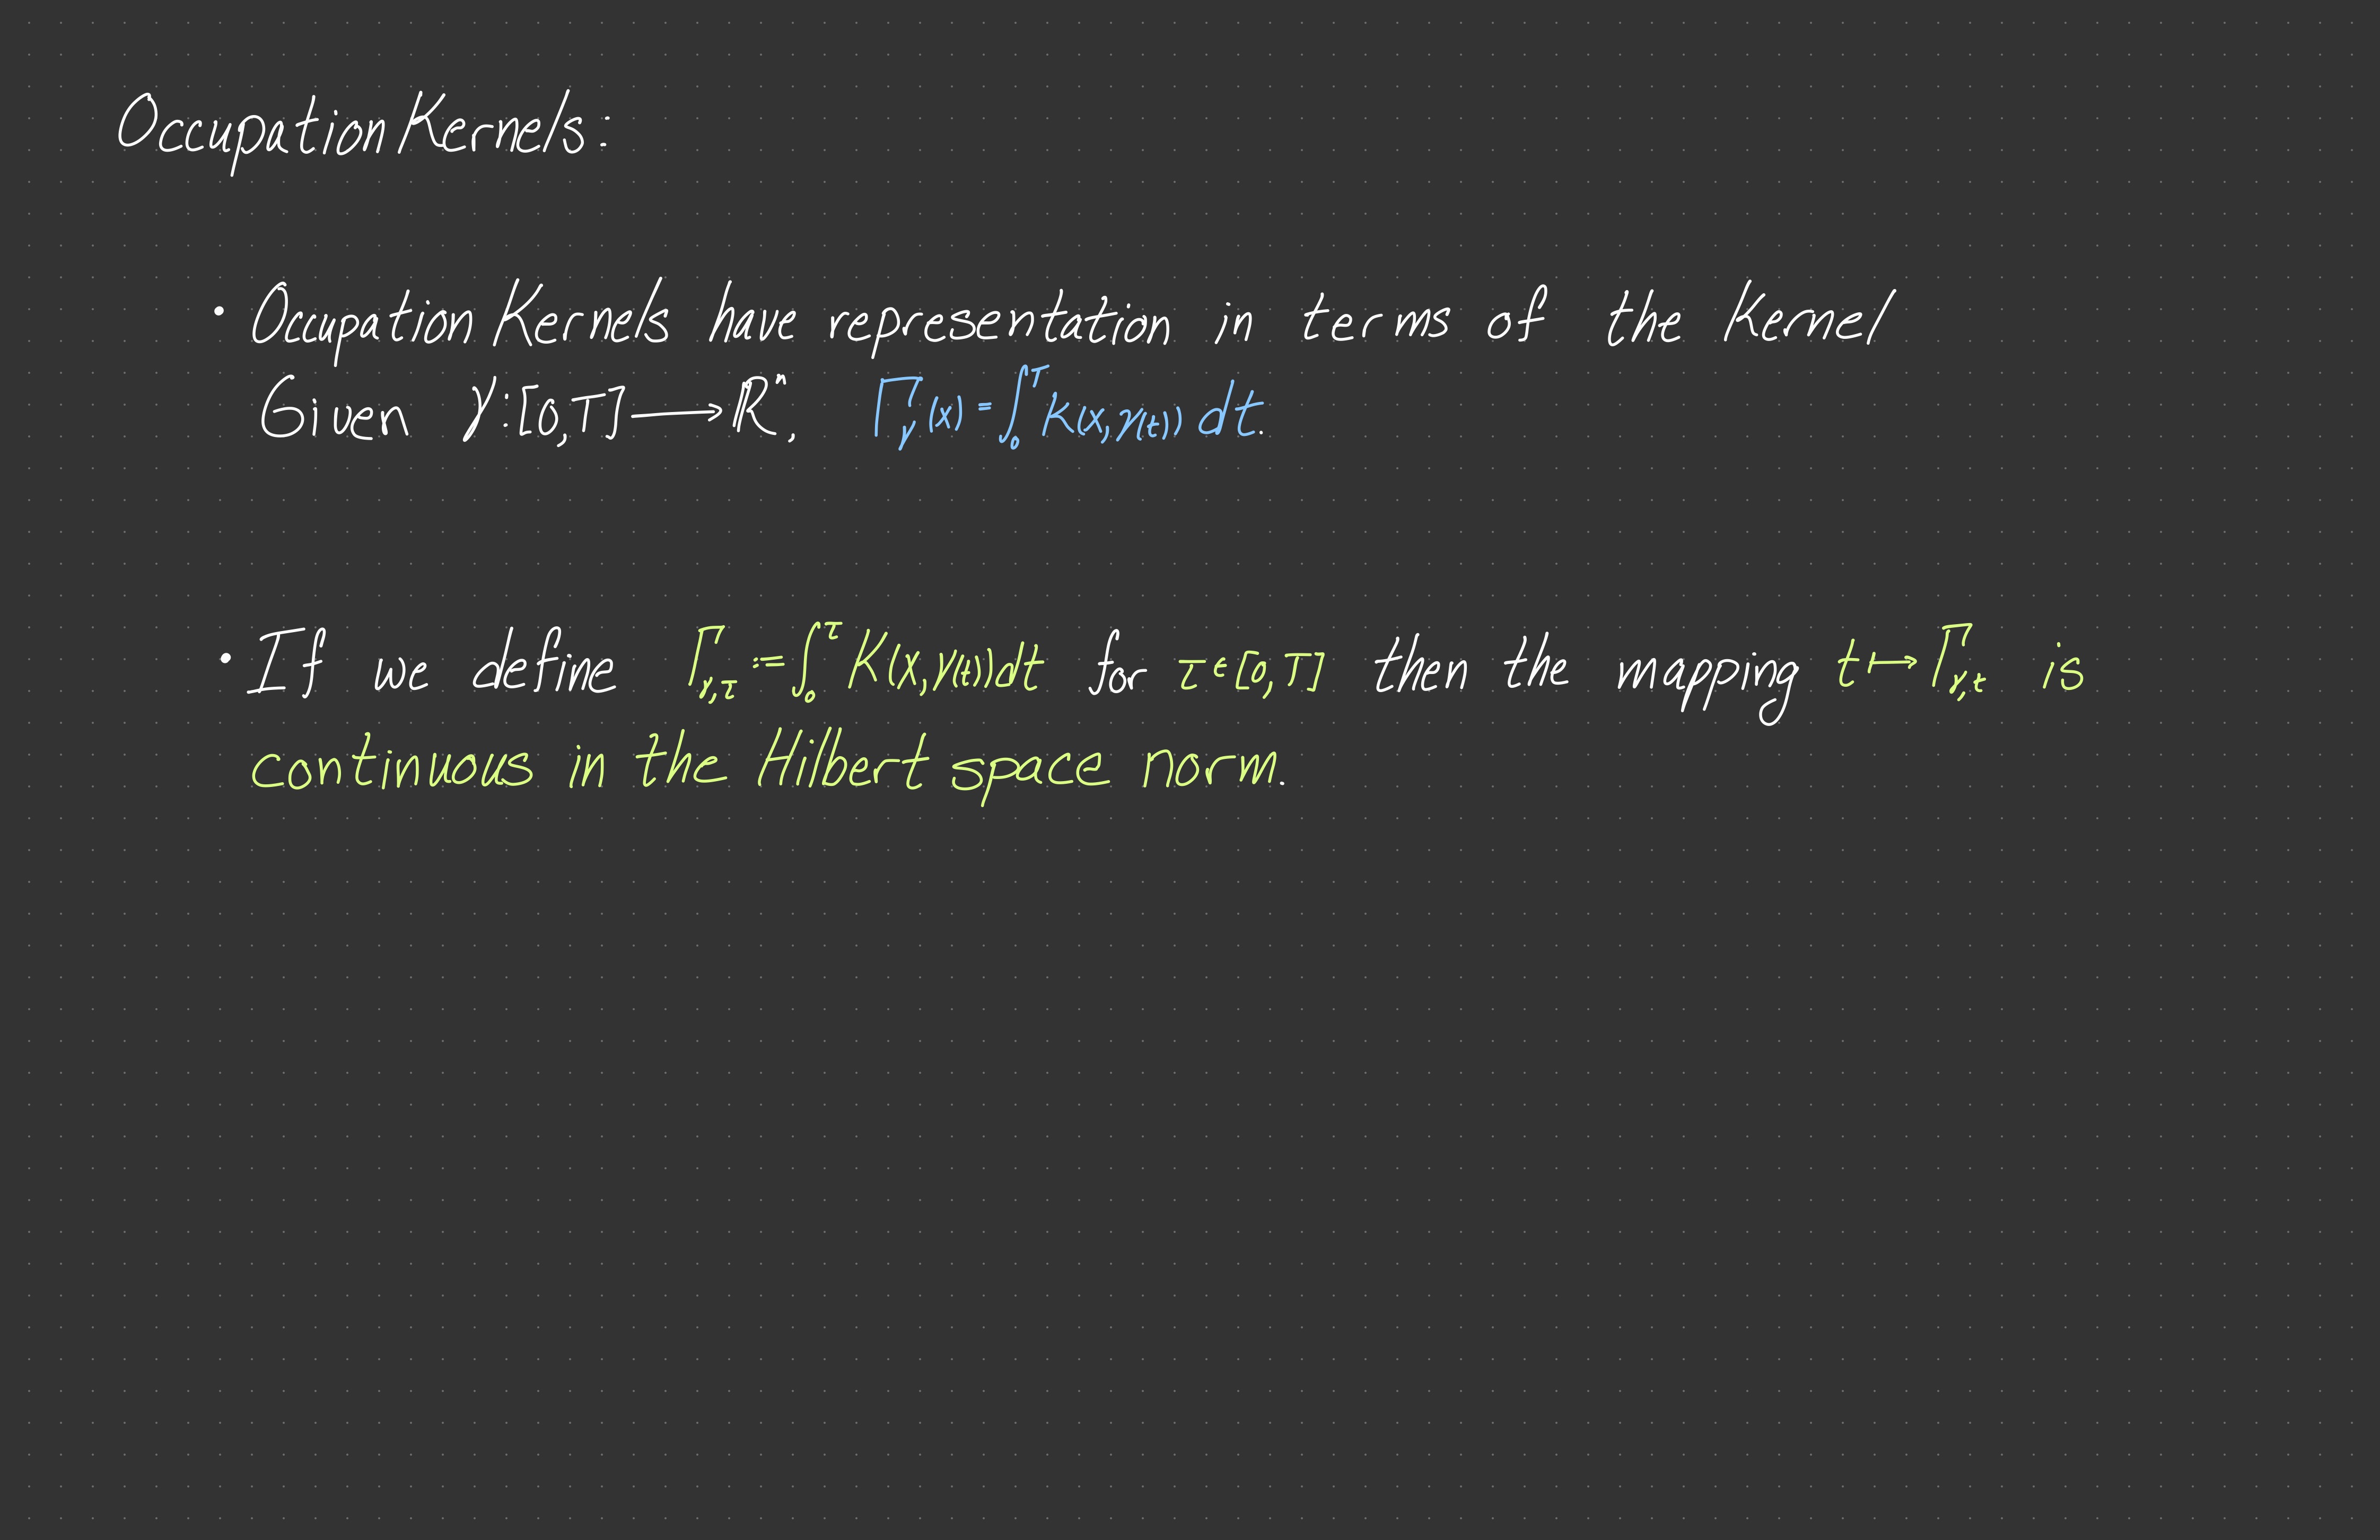 Occupation Kernels:
• Occupation Kernels have representation in terms of the Kernel
Given γ:[0,T]⟶ℝⁿ, Γ_γ(x) = ∫₀ᵀ K(x,γ(t)) dt.
• If we define Γ_{γ,τ} := ∫₀^τ K(x,γ(t))dt for τ ∈ [0,T] then the mapping t ↦ Γ_{γ,t} is
continuous in the Hilbert space norm.